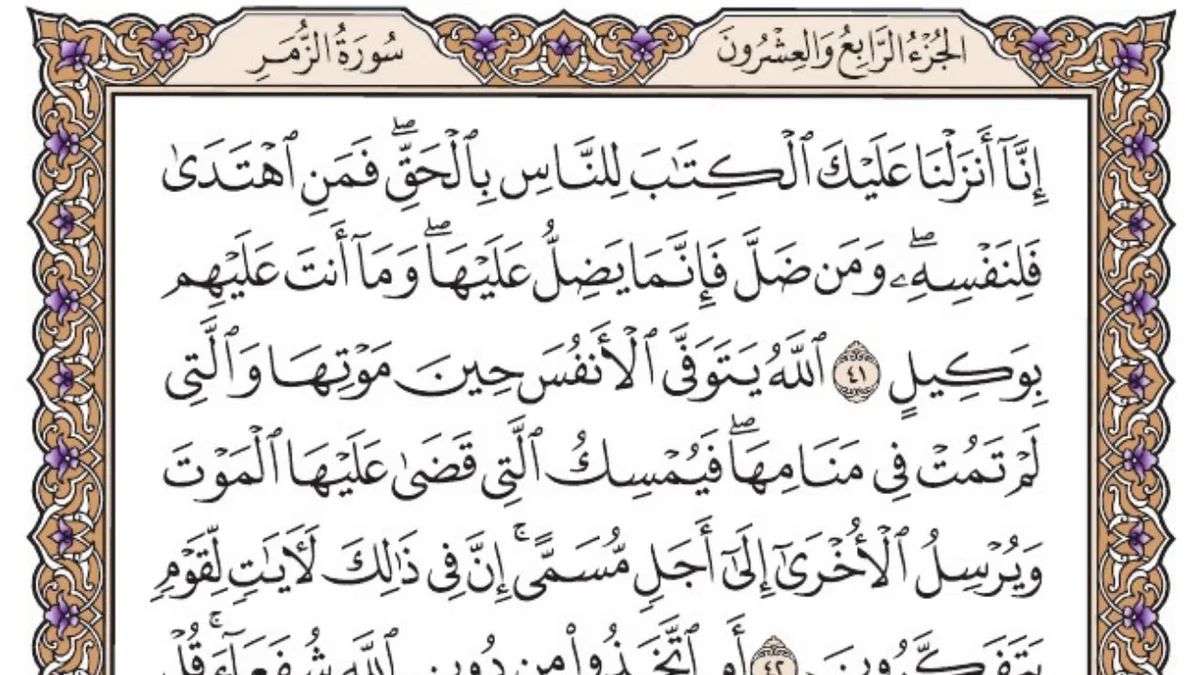 الجُزْءُ الرَّابِعُ وَالعِشْرُونَ
سُورَةُ الزُّمَرِ
إِنَّآ أَنزَلْنَا عَلَيْكَ ٱلْكِتَٰبَ لِلنَّاسِ بِٱلْحَقِّۖ فَمَنِ ٱهْتَدَىٰ
فَلِنَفْسِهِۦۖ وَمَن ضَلَّ فَإِنَّمَا يَضِلُّ عَلَيْهَاۖ وَمَآ أَنتَ عَلَيْهِم
بِوَكِيلٍ ٤١ ٱللَّهُ يَتَوَفَّى ٱلْأَنفُسَ حِينَ مَوْتِهَا وَٱلَّتِى
لَمْ تَمُتْ فِى مَنَامِهَاۖ فَيُمْسِكُ ٱلَّتِى قَضَىٰ عَلَيْهَا ٱلْمَوْتَ
وَيُرْسِلُ ٱلْأُخْرَىٰٓ إِلَىٰٓ أَجَلٍ مُّسَمًّىۚ إِنَّ فِى ذَٰلِكَ لَءَايَٰتٍ لِّقَوْمٍ
يَتَفَكَّرُونَ ٤٢ أَمِ ٱتَّخَذُوا۟ مِن دُونِ ٱللَّهِ شُفَعَآءَۚ قُلْ